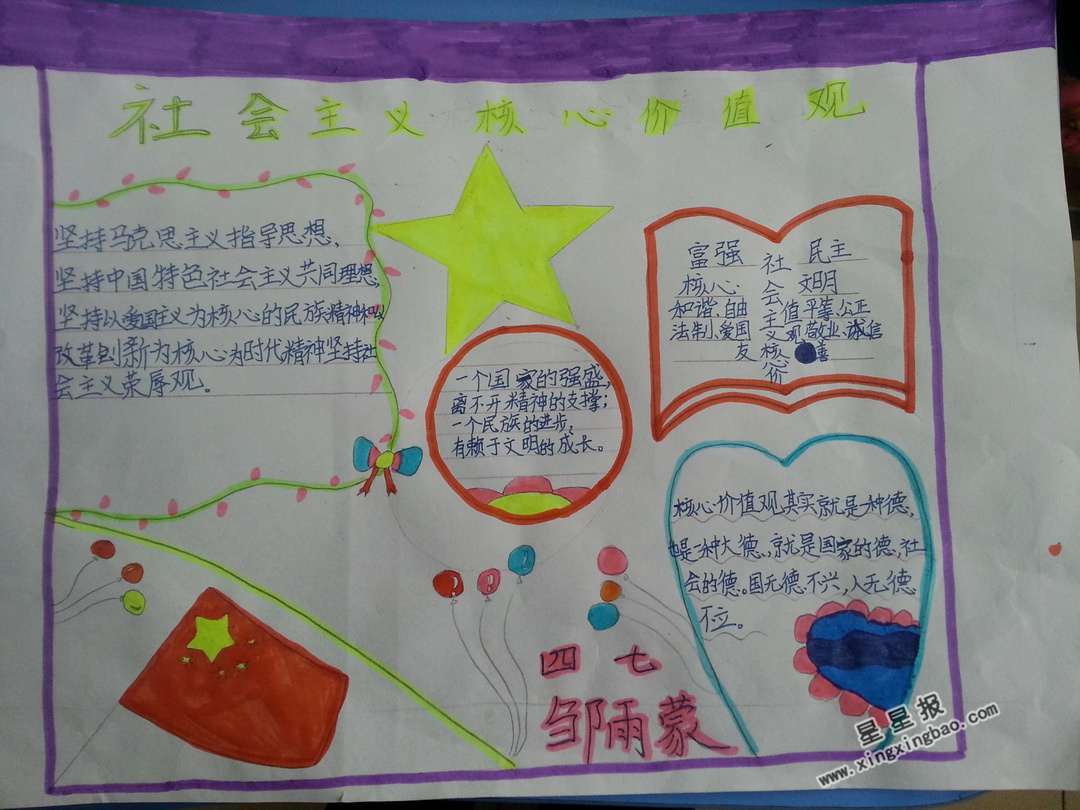 社会主义核心价值观
坚持马克思主义指导思想、
坚持中国特色社会主义共同理想,
坚持以爱国主义为核心的民族精神和以
改革创新为核心为时代精神坚持社
会主义荣辱观。
一个国家的强盛,
离不开精神的支撑;
一个民族的进步,
有赖于文明的成长。
富强 民主
核心 文明
和谐、自由 值平等、公正
法制、爱国 观敬业、诚信
友 善
社会主义核心价
核心价值观其实就是一种德,
也是一种大德,就是国家的德,社
会的德。国无德不兴,人无德
不立。
四 七
邹雨蒙
星星报
www.xingxingbao.com